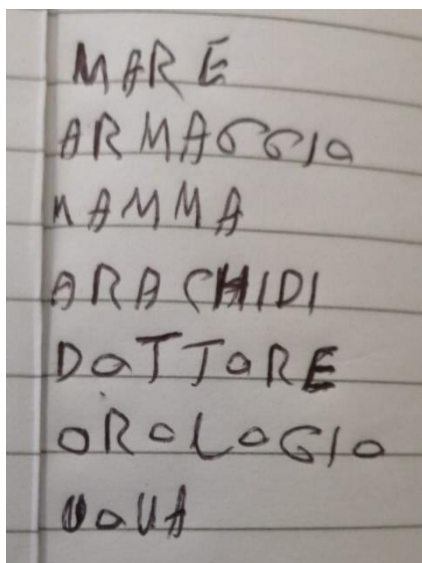 MARE
ARMAGGIO
MAMMA
ARACHIDI
DOTTORE
OROLOGIO
UOVA